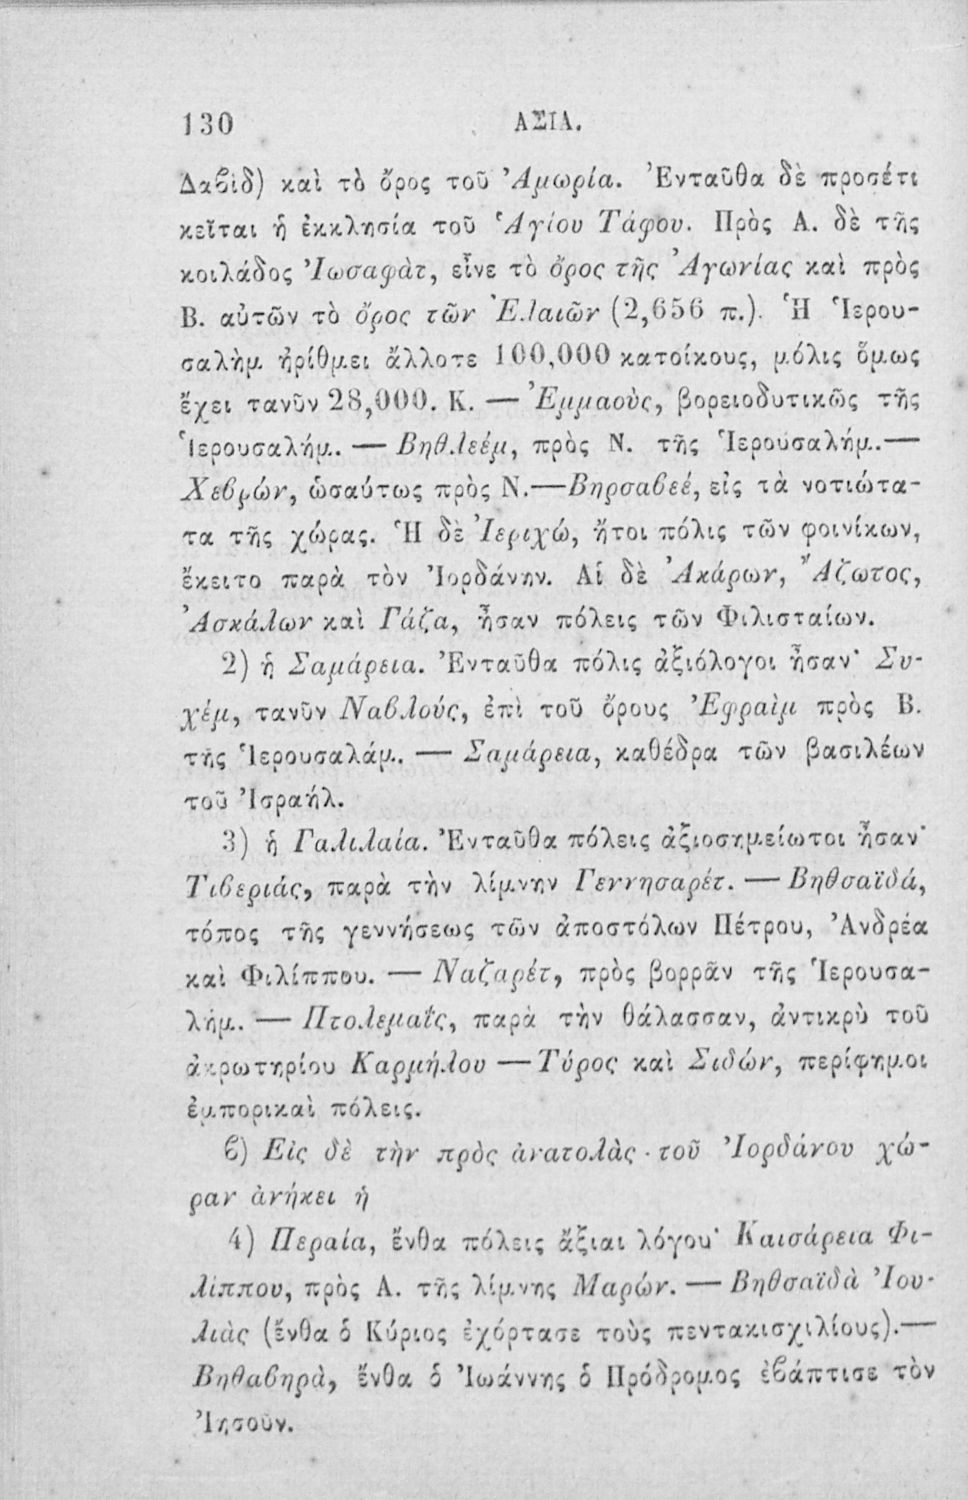 130 ΑΣΙΑ.
Δαϐὶδ) καὶ τὸ ὄρος τοῦ Ἀμωρία. Ἐνταῦθα δὲ προσέτι
κεῖται ἡ ἐκκλησία τοῦ Ἁγίου Τάφου. Πρὸς Α. δὲ τῆς
κοιλάδος Ἰωσαφὰτ, εἶνε τὸ ὄρος τῆς Ἀγωνίας καὶ πρὸς
Β. αὐτῶν τὸ ὄρος τῶν Ἐλαιῶν (2,656 π.). Ἡ Ἱερου-
σαλὴμ ἠρίθμει ἄλλοτε 100,000 κατοίκους, μόλις ὅμως
ἔχει τανῦν 28,000. Κ. — Ἐμμαοὺς, βορειοδυτικῶς τῆς
Ἱερουσαλήμ. — Βηθλεὲμ, πρὸς Ν. τῆς Ἱερουσαλήμ.—
Χεϐρών, ὡσαύτως πρὸς Ν.—Βηρσαϐεὲ, εἰς τὰ νοτιώτα-
τα τῆς χώρας. Ἡ δὲ Ἰεριχώ, ἤτοι πόλις τῶν φοινίκων,
ἔκειτο παρὰ τὸν Ἰορδάνην. Αἱ δὲ Ἀκάρων, Ἄζωτος,
Ἀσκάλων καὶ Γάζα, ἦσαν πόλεις τῶν Φιλισταίων.
2) ἡ Σαμάρεια. Ἐνταῦθα πόλις ἀξιόλογοι ἦσαν· Συ-
χέμ, τανῦν Ναϐλούς, ἐπὶ τοῦ ὄρους Ἐφραὶμ πρὸς Β.
τῆς Ἱερουσαλάμ. — Σαμάρεια, καθέδρα τῶν βασιλέων
τοῦ Ἰσραήλ.
3) ἡ Γαλιλαία. Ἐνταῦθα πόλεις ἀξιοσημείωτοι ἦσαν·
Τιϐεριάς, παρὰ τὴν λίμνην Γεννησαρέτ. — Βηθσαϊδά,
τόπος τῆς γεννήσεως τῶν ἀποστόλων Πέτρου, Ἀνδρέα
καὶ Φιλίππου. — Ναζαρέτ, πρὸς βορρᾶν τῆς Ἱερουσα-
λήμ. — Πτολεμαΐς, παρὰ τὴν θάλασσαν, ἀντικρὺ τοῦ
ἀκρωτηρίου Καρμήλου — Τύρος καὶ Σιδών, περίφημοι
ἐμπορικαὶ πόλεις.
ϐ) Εἰς δὲ τὴν πρὸς ἀνατολὰς τοῦ Ἰορδάνου χώ-
ραν ἀνήκει ἡ
4) Περαία, ἔνθα πόλεις ἄξιαι λόγου· Καισάρεια Φι-
λίππου, πρὸς Α. τῆς λίμνης Μαρών. — Βηθσαϊδὰ Ἰου-
λιὰς (ἔνθα ὁ Κύριος ἐχόρτασε τοὺς πεντακισχιλίους).—
Βηθαϐηρὰ, ἔνθα ὁ Ἰωάννης ὁ Πρόδρομος ἐϐάπτισε τὸν
Ἰησοῦν.